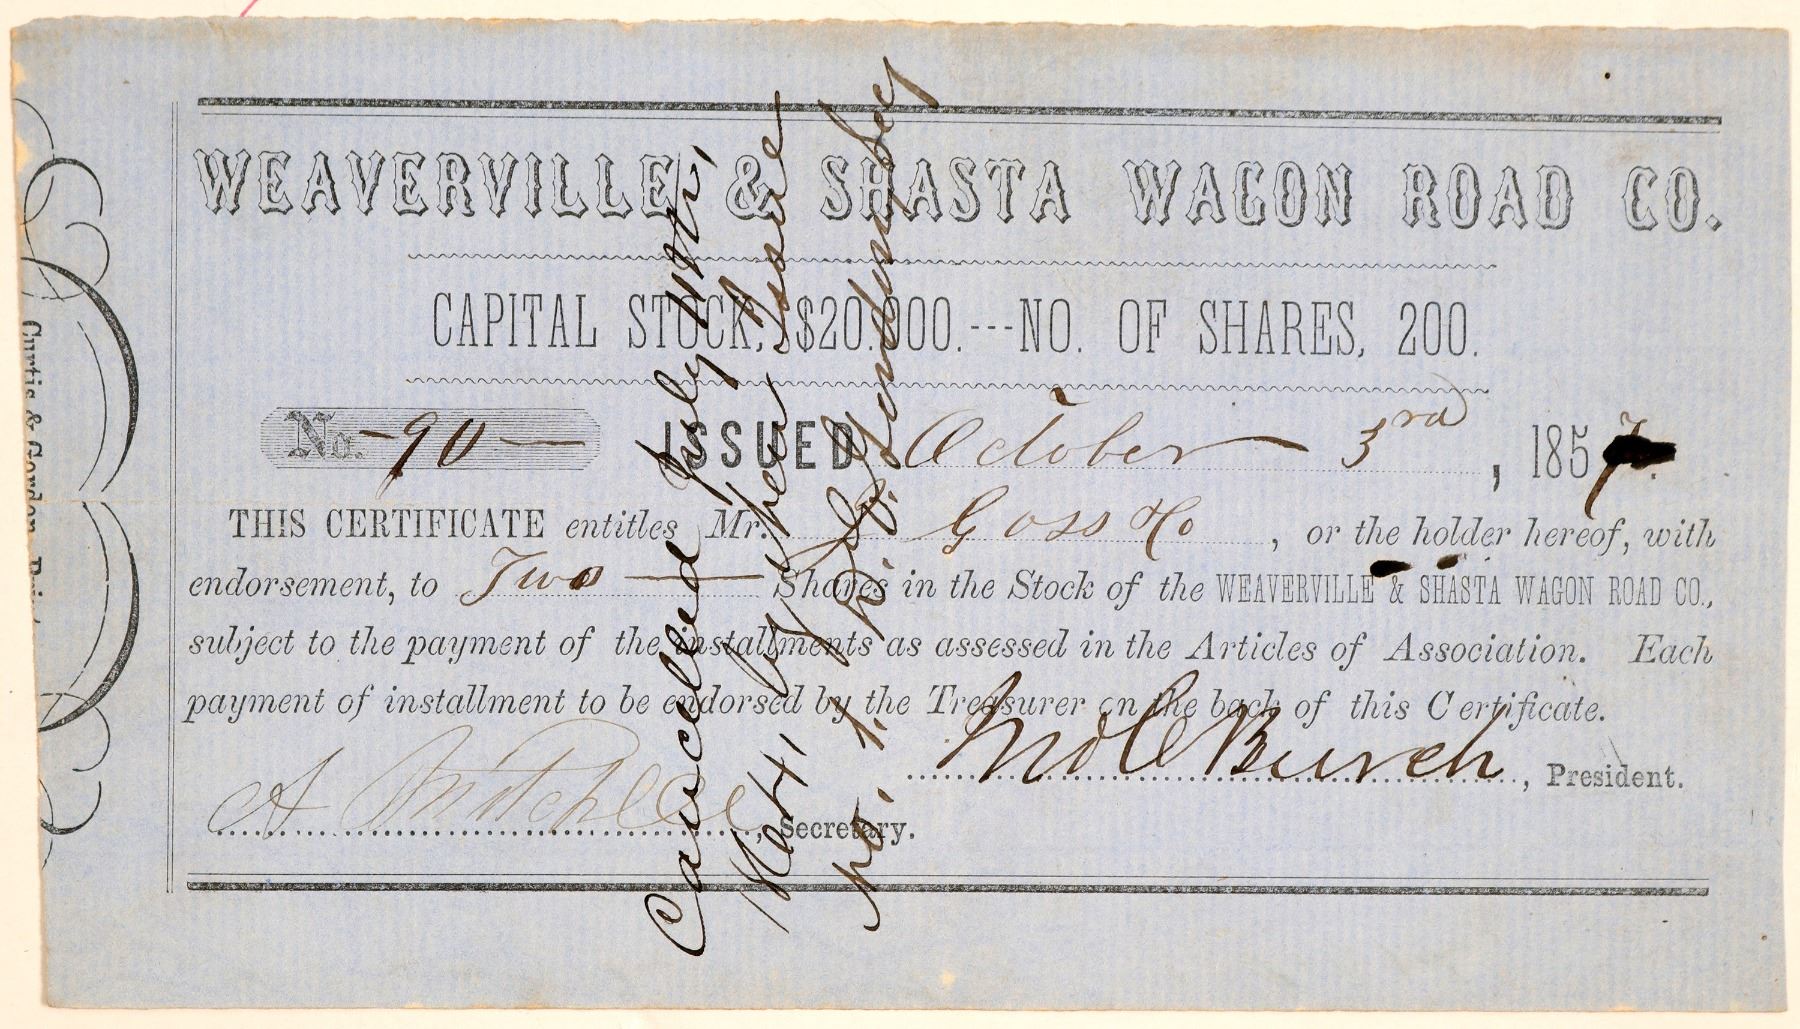 WEAVERVILLE & SHASTA WAGON ROAD CO.
CAPITAL STOCK, $20.000.---NO. OF SHARES, 200.
No. - 90 — ISSUED October 3rd, 1857.
THIS CERTIFICATE entitles Mr. Goss & Co, or the holder hereof, with
endorsement, to Two — Shares in the Stock of the WEAVERVILLE & SHASTA WAGON ROAD CO.,
subject to the payment of the installments as assessed in the Articles of Association. Each
payment of installment to be endorsed by the Treasurer on the back of this Certificate.
Burch, President.
A Mitchell, Secretary.
Cancelled July
by
Curtis & Gordon